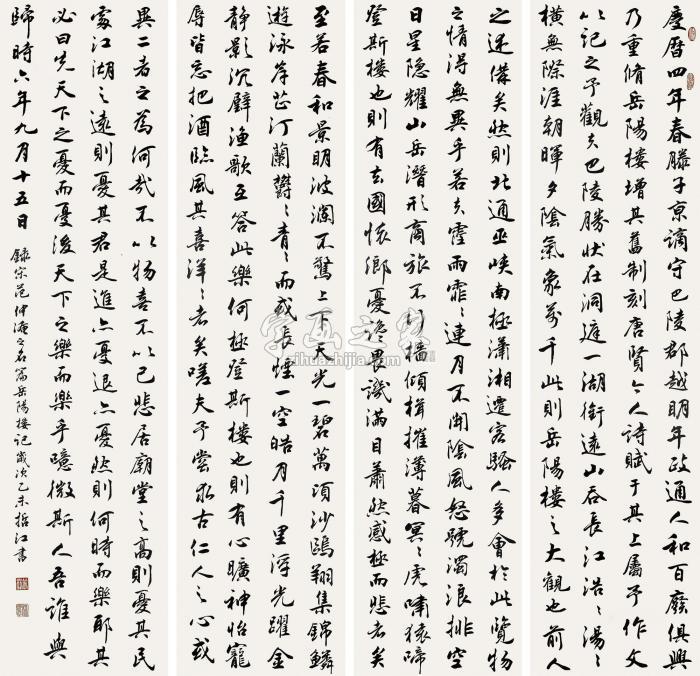 慶曆四年春滕子京謫守巴陵郡越明年政通人和百廢俱興
乃重脩岳陽樓增其舊制刻唐賢今人詩賦于其上屬予作文
以記之予觀夫巴陵勝狀在洞庭一湖銜遠山吞長江浩浩湯湯
橫無際涯朝暉夕陰氣象萬千此則岳陽樓之大觀也前人
之述備矣然則北通巫峽南極瀟湘遷客騷人多會於此覽物
之情得無異乎若夫霪雨霏霏連月不開陰風怒號濁浪排空
日星隱耀山岳潛形商旅不行檣傾楫摧薄暮冥冥虎嘯猿啼
登斯樓也則有去國懷鄉憂讒畏譏滿目蕭然感極而悲者矣
至若春和景明波瀾不驚上下天光一碧萬頃沙鷗翔集錦鱗
遊泳岸芷汀蘭鬱鬱青青而或長煙一空皓月千里浮光躍金
靜影沉璧漁歌互答此樂何極登斯樓也則有心曠神怡寵
辱皆忘把酒臨風其喜洋洋者矣嗟夫予嘗求古仁人之心或
異二者之為何哉不以物喜不以己悲居廟堂之高則憂其民
處江湖之遠則憂其君是進亦憂退亦憂然則何時而樂耶其
必曰先天下之憂而憂後天下之樂而樂乎噫微斯人吾誰與
歸時六年九月十五日 錄宋范仲淹之名篇岳陽樓記歲次乙未江書
字画之家
zihuazhijia.com